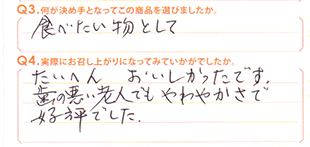 Q3.何が決め手となってこの商品を選びましたか。
食べたい物として
Q4.実際にお召し上がりになってみていかがでしたか。
たいへん おいしかったです。
歯の悪い老人でもやわやかさで
好評でした。